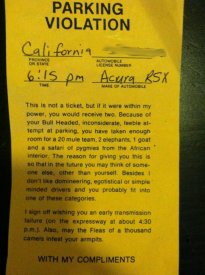 PARKING
VIOLATION
California
PROVINCE
OR STATE
AUTOMOBILE
LICENSE NUMBER
6:15 pm Acura RSX
TIME
MAKE OF AUTOMOBILE
This is not a ticket, but if it were within my
power, you would receive two. Because of
your Bull Headed, inconsiderate, feeble at-
tempt at parking, you have taken enough
room for a 20 mule team, 2 elephants, 1 goat
and a safari of pygmies from the African
interior. The reason for giving you this is
so that in the future you may think of some-
one else, other than yourself. Besides I
don't like domineering, egotistical or simple
minded drivers and you probably fit into
one of these categories.
I sign off wishing you an early transmission
failure (on the expressway at about 4:30
p.m.). Also, may the Fleas of a thousand
camels infest your armpits.
WITH MY COMPLIMENTS